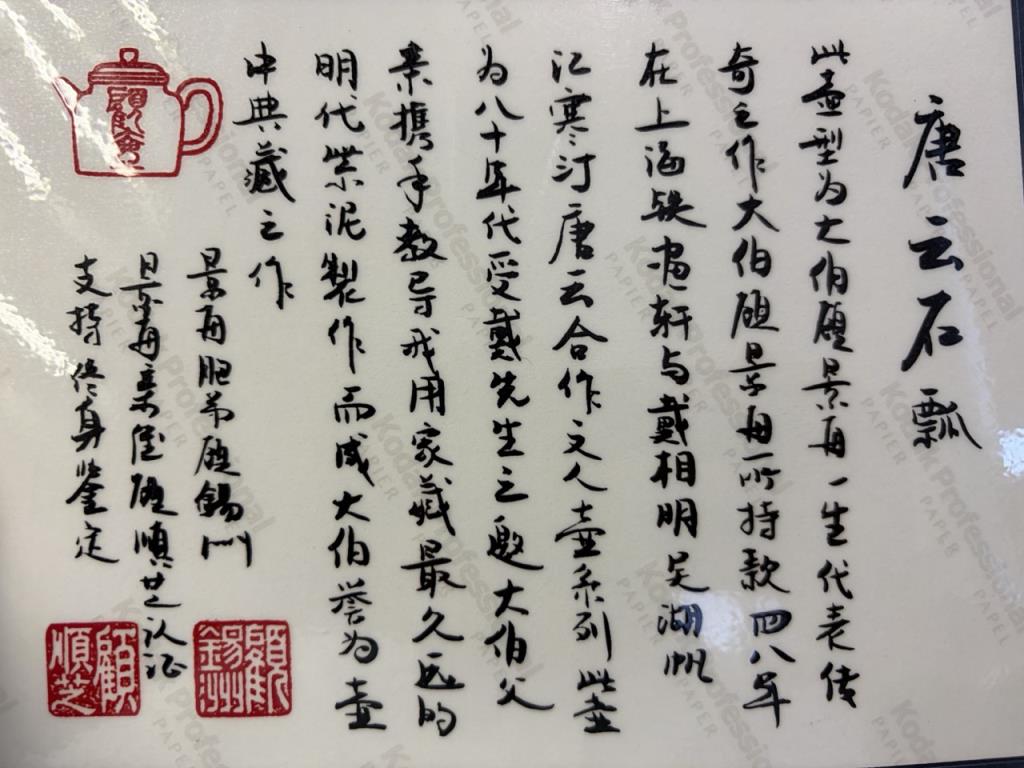 唐云石瓢
此壶型为大伯顾景舟一生代表传
奇之作大伯顾景舟所持款四八年
在上海铁画轩与戴相明吴湖帆
江寒汀唐云合作文人壶系列此壶
为八十年代受戴先生之邀大伯父
亲携手教导我用家藏最久远的
明代紫泥製作而成大伯誉为壶
中典藏之作
景舟胞弟顾锡州
景舟亲侄顾顺芝认证
支持终身鉴定
顧錫州
顧順芝
Kodak Professional
PAPIER